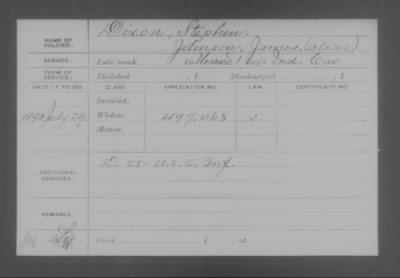 NAME OF SOLDIER: Dixon, Stephen.
Johnson, James. (alias)
SERVICE: Late rank,
TERM OF SERVICE: Enlisted , 1 Discharged , 1
DATE OF FILING. CLASS. APPLICATION NO. LAW. CERTIFICATE NO.
Invalid,
1890 July 29. Widow, 497.068
Minor,
ADDITIONAL SERVICES: U.S.C. Inf.
REMARKS:
Died , 1 , at